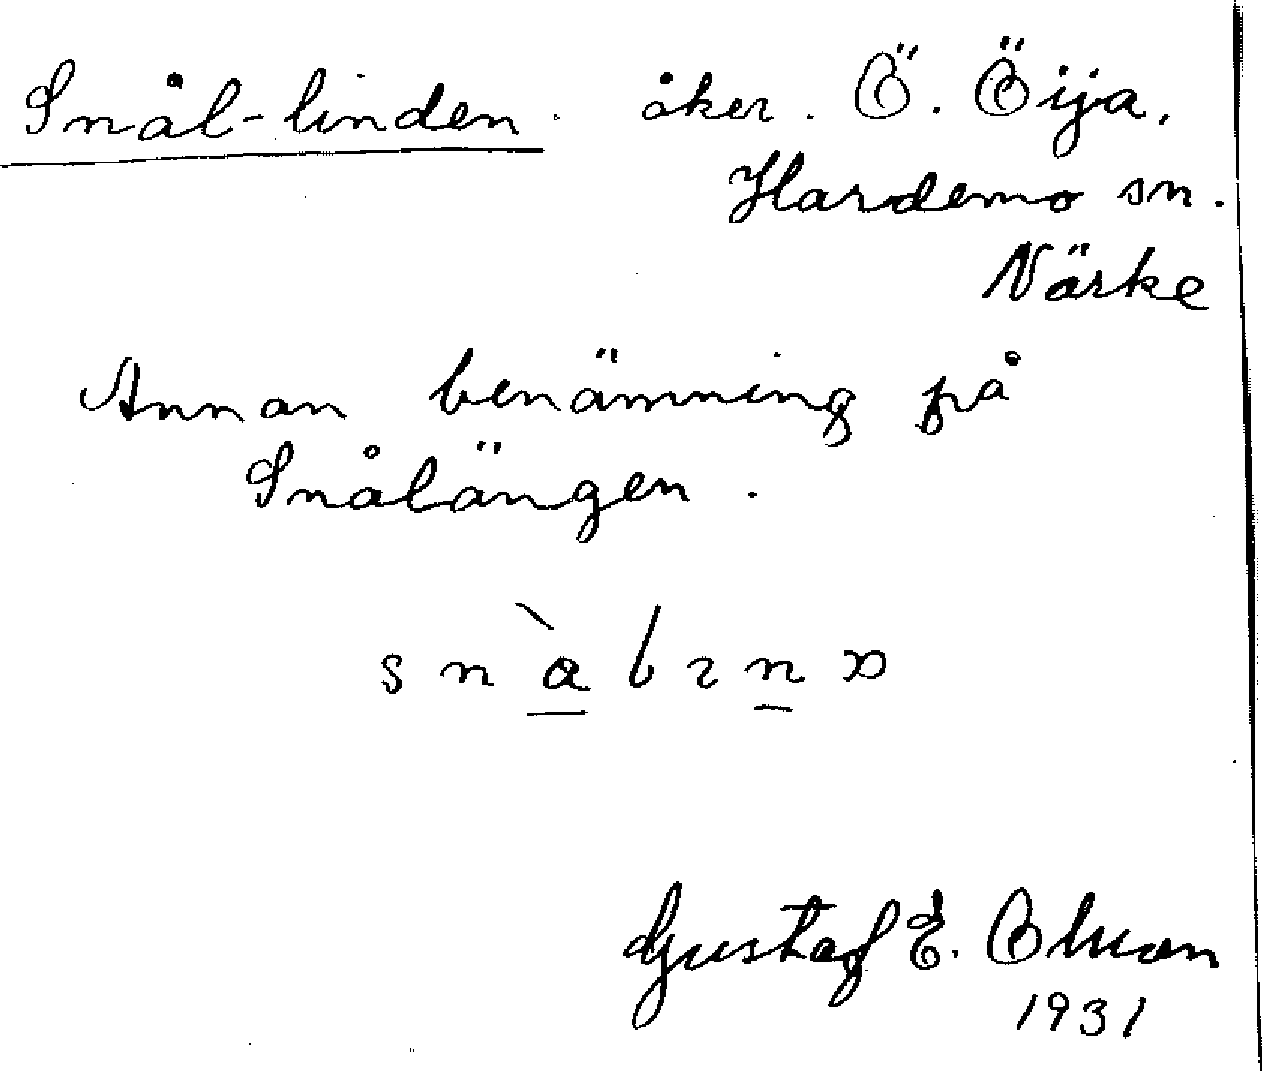 Snål-linden. åker. Ö. Öija,
Hardemo sn.
Närke
Annan benämning på
Snålängen.
Gustaf E. Olson
1931